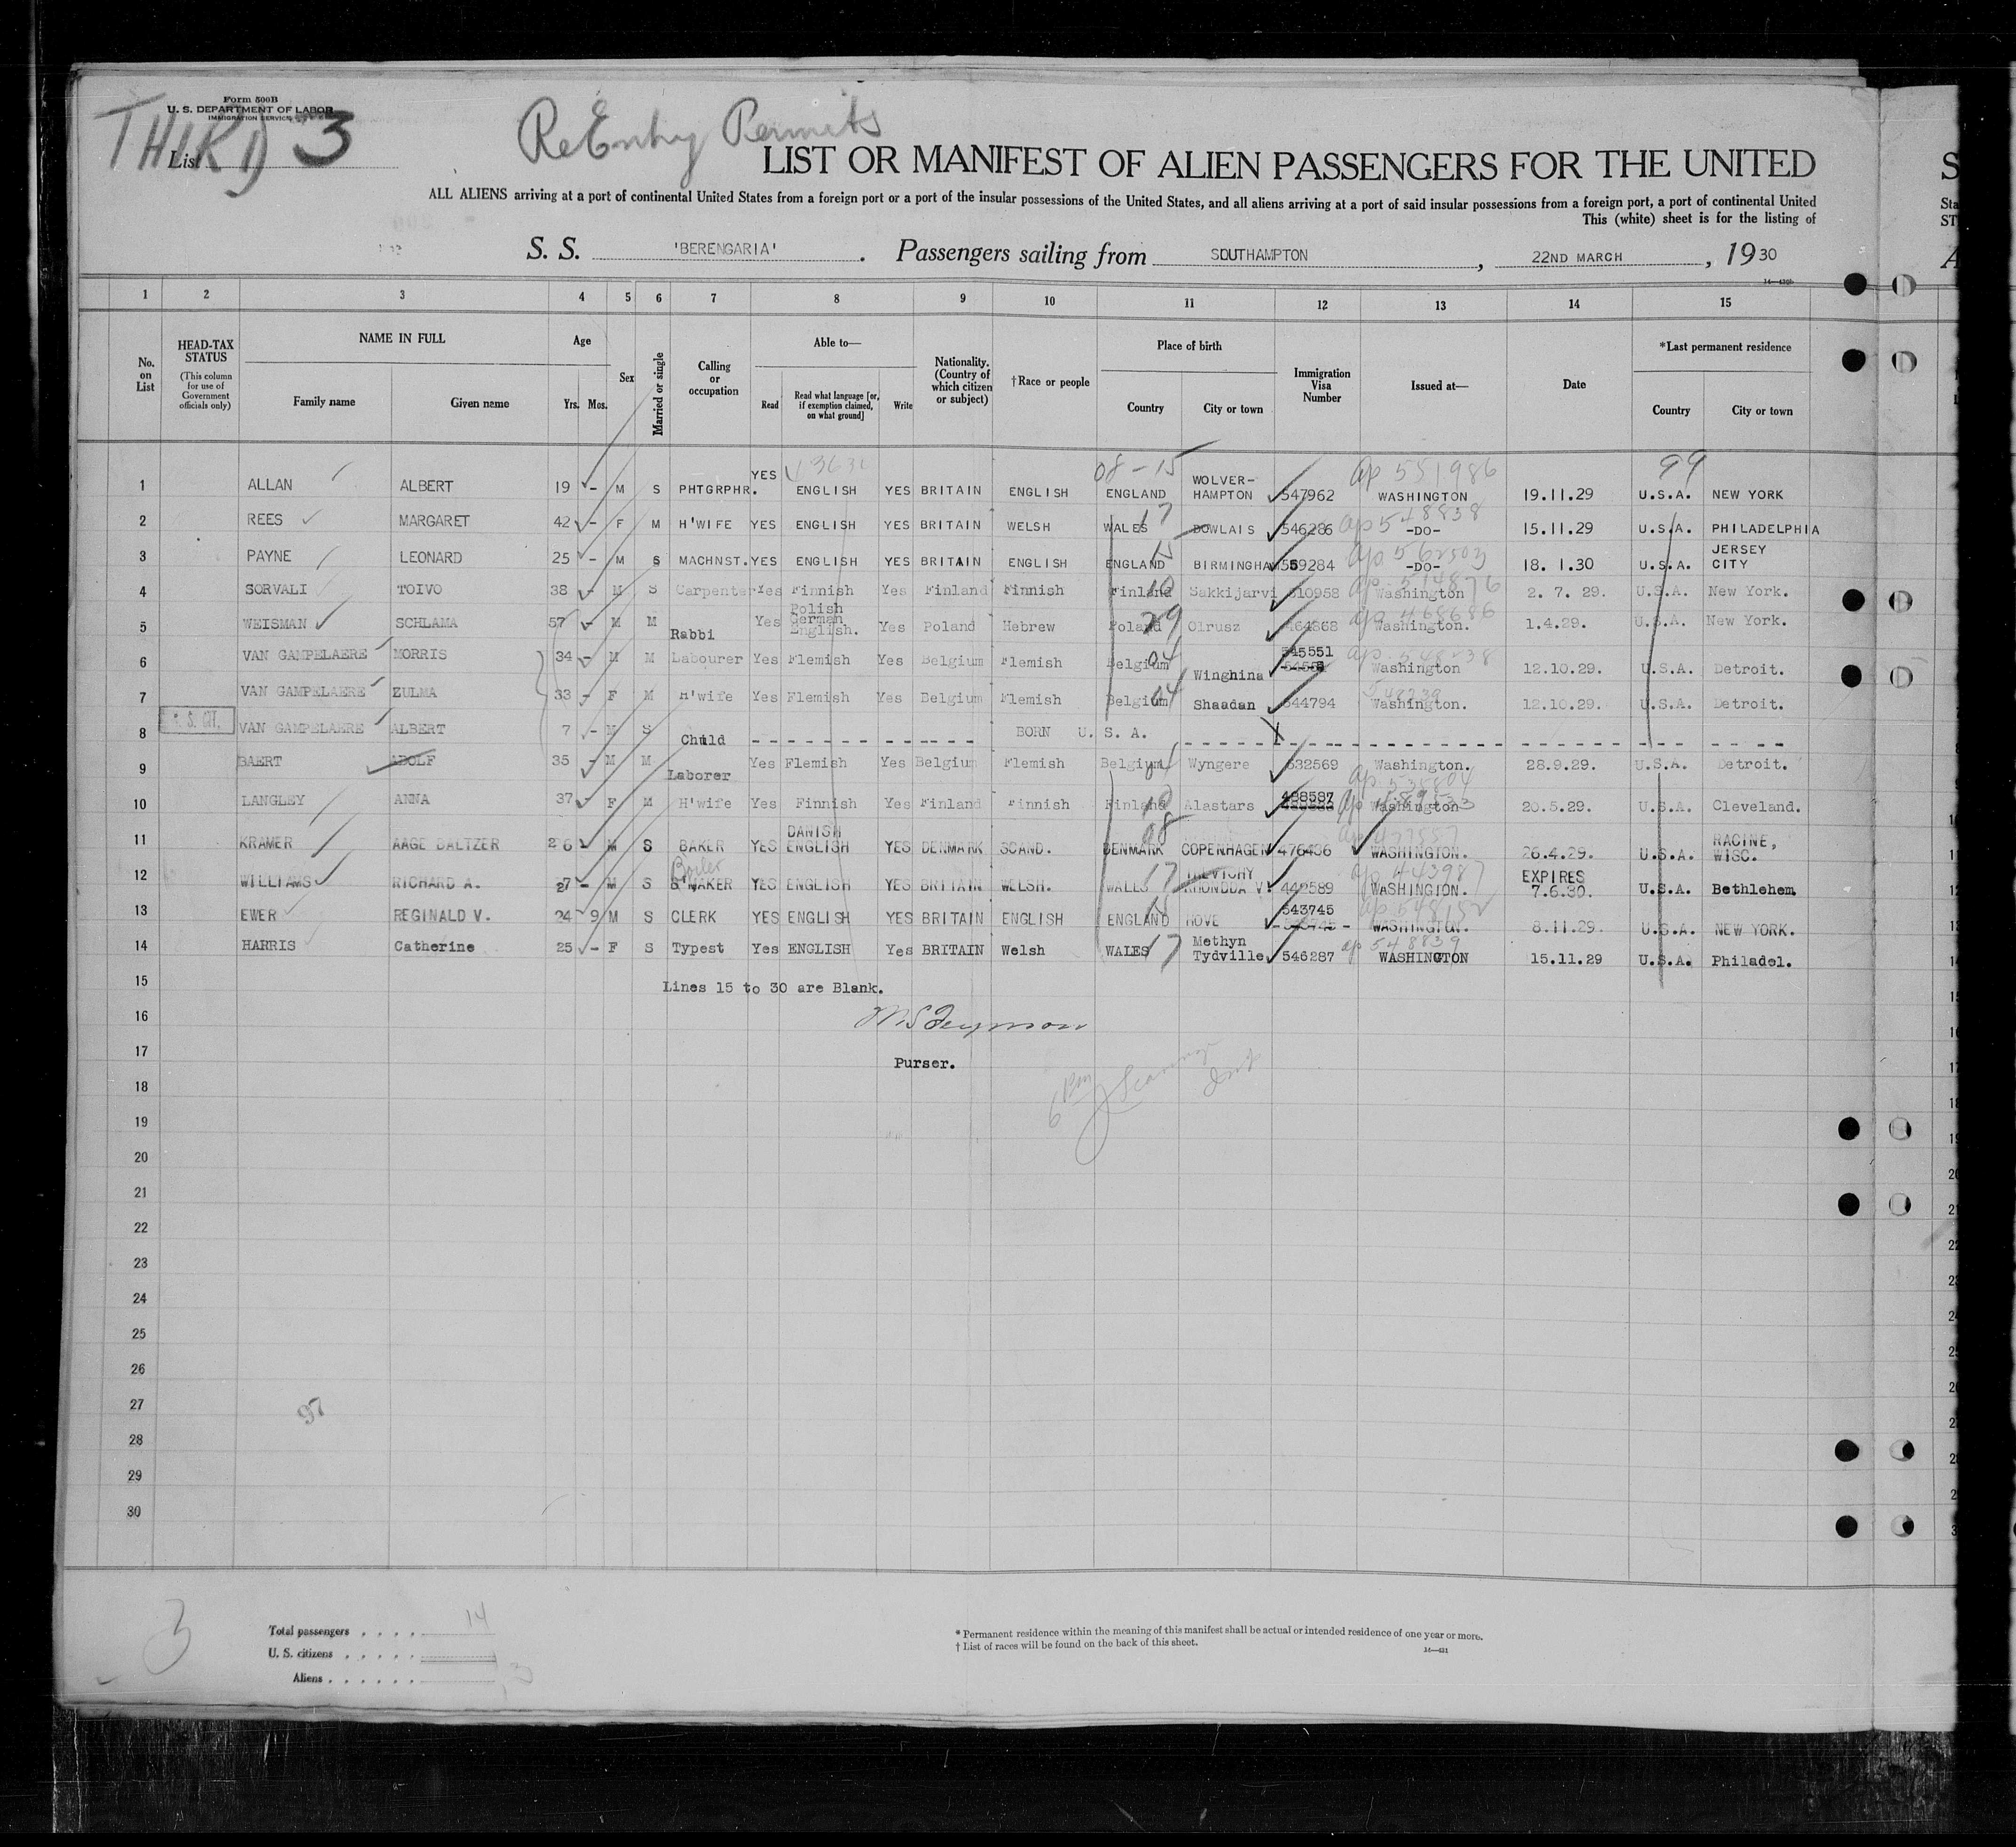 Form 500B
U. S. DEPARTMENT OF LABOR
IMMIGRATION SERVICE
THIRD 3
List
ReEntry Permits
LIST OR MANIFEST OF ALIEN PASSENGERS FOR THE UNITED S
ALL ALIENS arriving at a port of continental United States from a foreign port or a port of the insular possessions of the United States, and all aliens arriving at a port of said insular possessions from a foreign port, a port of continental United Sta
This (white) sheet is for the listing of ST
S. S. 'BERENGARIA'. Passengers sailing from SOUTHAMPTON, 22ND MARCH, 1930 A
1 2 3 4 5 6 7 8 9 10 11 12 13 14 15
No. on List
HEAD-TAX STATUS
(This column for use of Government officials only)
NAME IN FULL
Family name Given name
Age
Yrs. Mos.
Sex
Married or single
Calling or occupation
Able to—
Read
Read what language [or, if exemption claimed, on what ground]
Write
Nationality. (Country of which citizen or subject)
† Race or people
Place of birth
Country City or town
Immigration Visa Number
Issued at—
Date
*Last permanent residence
Country City or town
1 ALLAN ALBERT 19 - M S PHTGRPHR. YES ENGLISH YES BRITAIN ENGLISH 08-15 ENGLAND WOLVER-HAMPTON 547962 ap 551986 WASHINGTON 19.11.29 99 U.S.A. NEW YORK
2 REES MARGARET 42 - F M H'WIFE YES ENGLISH YES BRITAIN WELSH WALES 17 DOWLAIS 546286 ap 548838 -DO- 15.11.29 U.S.A. PHILADELPHIA
3 PAYNE LEONARD 25 - M S MACHNST. YES ENGLISH YES BRITAIN ENGLISH ENGLAND 15 BIRMINGHAM 559284 ap 562503 -DO- 18. 1.30 U.S.A. JERSEY CITY
4 SORVALI TOIVO 38 - M S Carpenter Yes Finnish Yes Finland Finnish Finland 10 Sakkijarvi 510958 ap 514876 Washington 2. 7. 29. U.S.A. New York.
5 WEISMAN SCHLAMA 57 - M M Rabbi Yes Polish German English. Yes Poland Hebrew Poland 29 Olrusz 464868 ap 468686 Washington. 1.4.29. U.S.A. New York.
6 VAN GAMPELAERE MORRIS 34 - M M Labourer Yes Flemish Yes Belgium Flemish Belgium 04 Winghina 545551 ap 548238 Washington 12.10.29. U.S.A. Detroit.
7 VAN GAMPELAERE ZULMA 33 - F M H'wife Yes Flemish Yes Belgium Flemish Belgium 04 Shaadan 544794 548239 Washington. 12.10.29. U.S.A. Detroit.
8 VAN GAMPELAERE ALBERT 7 - M S Child BORN U. S. A.
9 BAERT ADOLF 35 - M M Laborer Yes Flemish Yes Belgium Flemish Belgium 04 Wyngere 532569 Washington. 28.9.29. U.S.A. Detroit.
10 LANGLEY ANNA 37 - F M H'wife Yes Finnish Yes Finland Finnish Finland 10 Alastars 488587 ap Washington 20.5.29. U.S.A. Cleveland.
11 KRAMER AAGE BALTZER 26 - M S BAKER YES DANISH ENGLISH YES DENMARK SCAND. DENMARK 08 COPENHAGEN 476436 ap 477557 WASHINGTON. 26.4.29. U.S.A. RACINE, WISC.
12 WILLIAMS RICHARD A. 27 - M S Boiler MAKER YES ENGLISH YES BRITAIN WELSH. WALES 17 RHONDDA V. 442589 ap 443987 WASHINGTON. EXPIRES 7.6.30. U.S.A. Bethlehem
13 EWER REGINALD V. 24 9 M S CLERK YES ENGLISH YES BRITAIN ENGLISH ENGLAND 15 HOVE 543745 ap 548152 WASHINGTON. 8.11.29. U.S.A. NEW YORK.
14 HARRIS Catherine 25 - F S Typest Yes ENGLISH Yes BRITAIN Welsh WALES 17 Methyn Tydville 546287 ap 548839 WASHINGTON 15.11.29 U.S.A. Philadel.
15 Lines 15 to 30 are Blank.
16
17 Purser.
18
19
20
21
22
23
24
25
26
27 97
28
29
30
3
Total passengers . . . . 14
U. S. citizens . . . . .
Aliens . . . . . . 13
* Permanent residence within the meaning of this manifest shall be actual or intended residence of one year or more.
† List of races will be found on the back of this sheet.
14—431